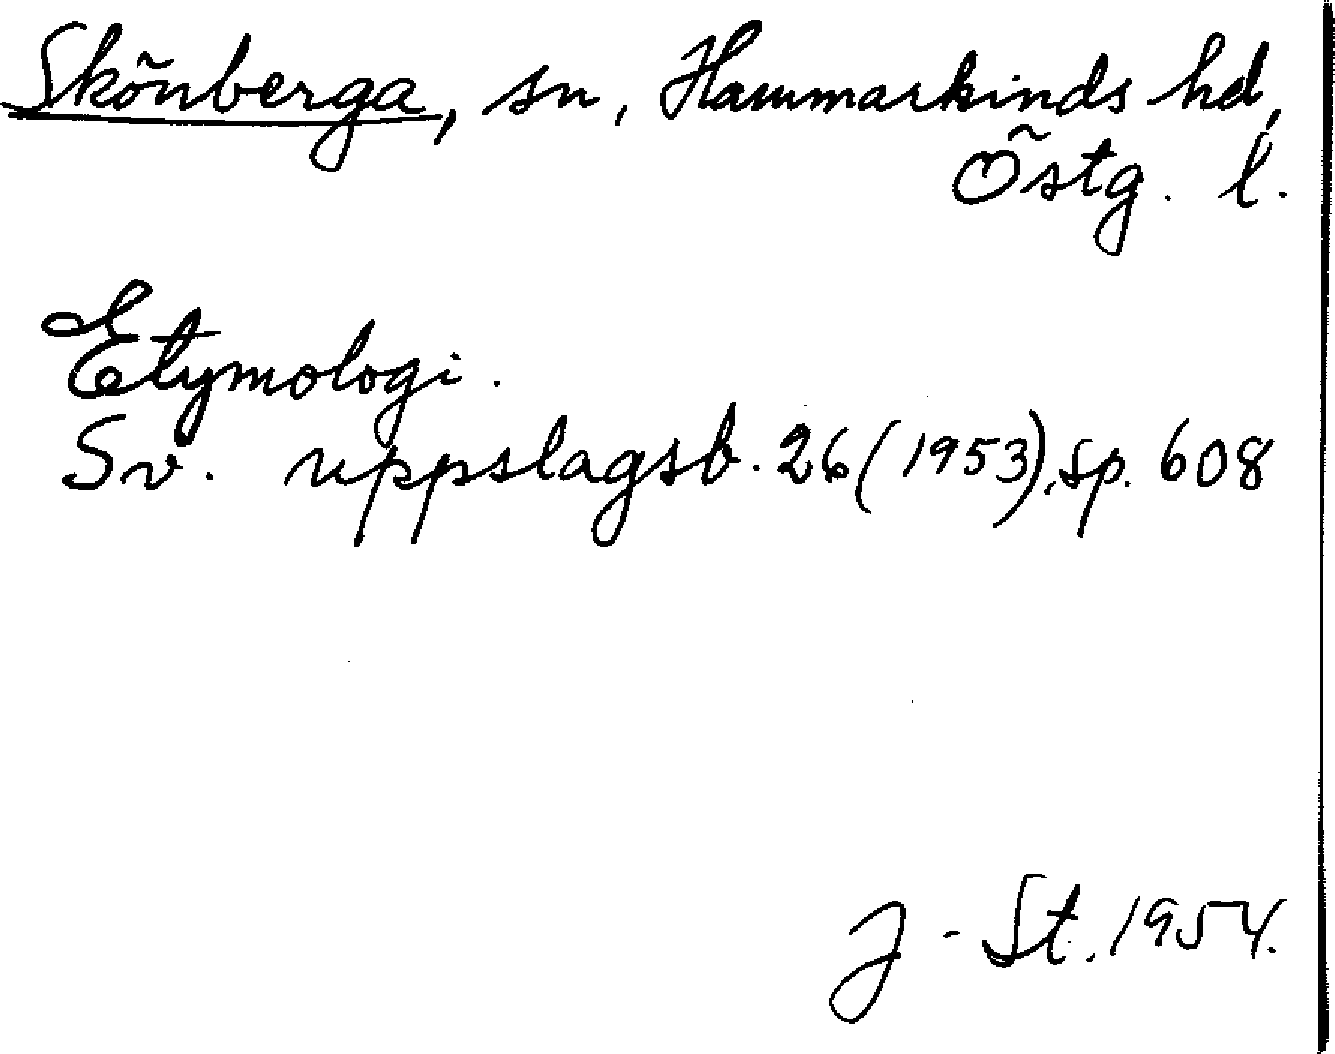 Skönberga, sn, Hammarkinds hd,
Östg. l.
Etymologi.
Sv. uppslagsb. 26 (1953), sp. 608
J-St. 1954.